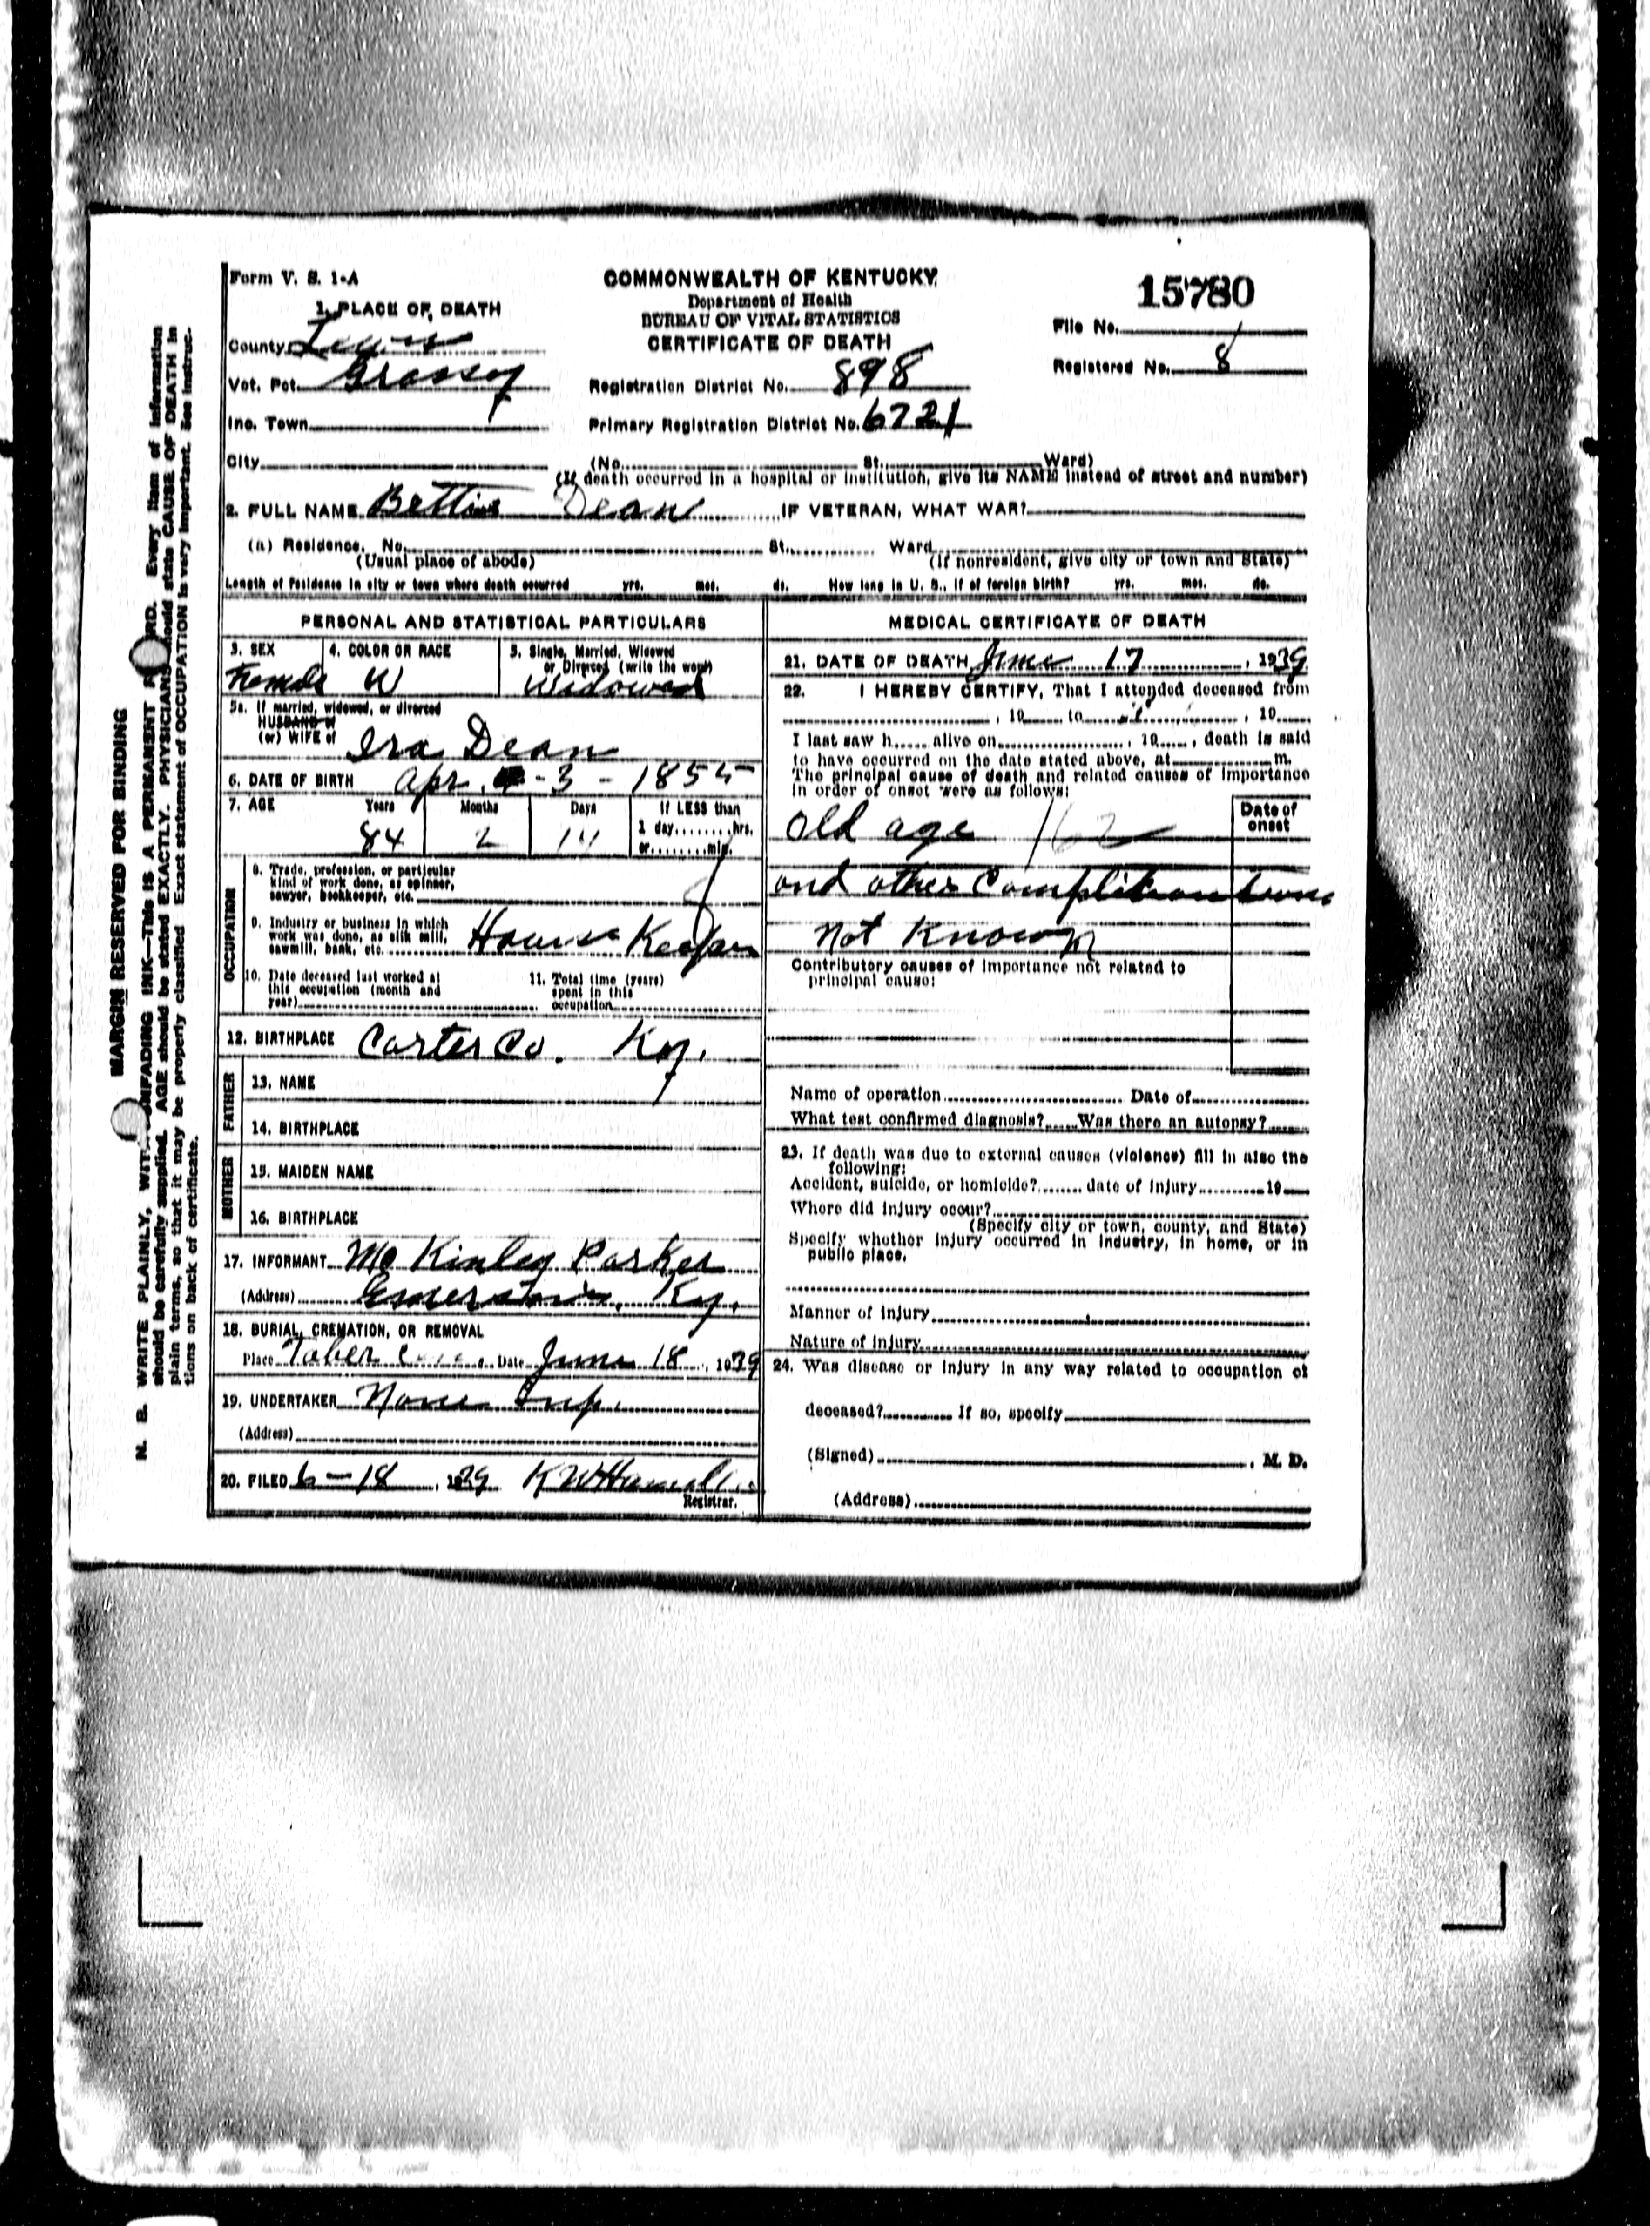 Form V. S. 1-A
COMMONWEALTH OF KENTUCKY
Department of Health
BUREAU OF VITAL STATISTICS
CERTIFICATE OF DEATH
15780
File No.
Registered No. 8
1. PLACE OF DEATH
County Lewis
Vot. Pct. Grassy
Registration District No. 898
Inc. Town
Primary Registration District No. 6721
City (No. St. Ward)
(If death occurred in a hospital or institution, give its NAME instead of street and number)
2. FULL NAME Bettie Dean IF VETERAN, WHAT WAR?
(a) Residence. No. St. Ward
(Usual place of abode) (If nonresident, give city or town and State)
Length of residence in city or town where death occurred yrs. mos. ds. How long in U. S., if of foreign birth? yrs. mos. ds.
PERSONAL AND STATISTICAL PARTICULARS
3. SEX 4. COLOR OR RACE 5. Single, Married, Widowed
or Divorced (write the word)
Female W Widowed
5a. If married, widowed, or divorced
HUSBAND of
(or) WIFE of Ira Dean
6. DATE OF BIRTH Apr. - 3 - 1855
7. AGE Years Months Days If LESS than
84 2 14 1 day hrs.
or min.
OCCUPATION
8. Trade, profession, or particular
kind of work done, as spinner,
sawyer, bookkeeper, etc.
9. Industry or business in which
work was done, as silk mill,
sawmill, bank, etc. House Keeper
10. Date deceased last worked at
this occupation (month and
year)
11. Total time (years)
spent in this
occupation
12. BIRTHPLACE Carter Co. Ky.
FATHER
13. NAME
14. BIRTHPLACE
MOTHER
15. MAIDEN NAME
16. BIRTHPLACE
17. INFORMANT McKinley Parker
(Address) Ky.
18. BURIAL, CREMATION, OR REMOVAL
Place Taber Date June 18, 1939
19. UNDERTAKER None
(Address)
20. FILED 6-18, 1939 K W
Registrar.
MEDICAL CERTIFICATE OF DEATH
21. DATE OF DEATH June 17, 1939
22. I HEREBY CERTIFY, That I attended deceased from
, 19 to , 19
I last saw h alive on , 19 , death is said
to have occurred on the date stated above, at m.
The principal cause of death and related causes of importance
in order of onset were as follows:
Date of
onset
Old age 162
and other Complitcations
not Known
Contributory causes of importance not related to
principal cause:
Name of operation Date of
What test confirmed diagnosis? Was there an autopsy?
23. If death was due to external causes (violence) fill in also the
following:
Accident, suicide, or homicide? date of injury 19
Where did injury occur?
(Specify city or town, county, and State)
Specify whether injury occurred in industry, in home, or in
public place.
Manner of injury
Nature of injury
24. Was disease or injury in any way related to occupation of
deceased? If so, specify
(Signed) , M. D.
(Address)
MARGIN RESERVED FOR BINDING
N. B. WRITE PLAINLY, WITH UNFADING INK—THIS IS A PERMANENT RECORD. Every item of information
should be carefully supplied. AGE should be stated EXACTLY. PHYSICIANS should state CAUSE OF DEATH in
plain terms, so that it may be properly classified. Exact statement of OCCUPATION is very important. See instruc-
tions on back of certificate.